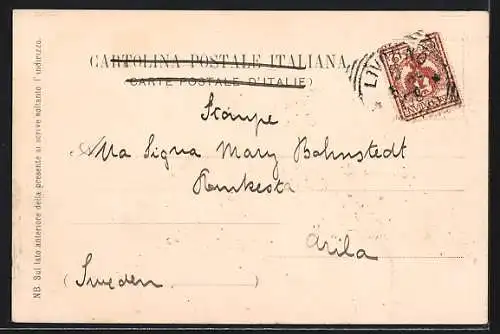 CARTOLINA POSTALE ITALIANA
(CARTE POSTALE D'ITALIE)
Stampe
Alla Signa Mary Bohnstedt
Ramkesta
Arila
(Sweden)
NB. Sul lato anteriore della presente si scrive soltanto l'indirizzo.